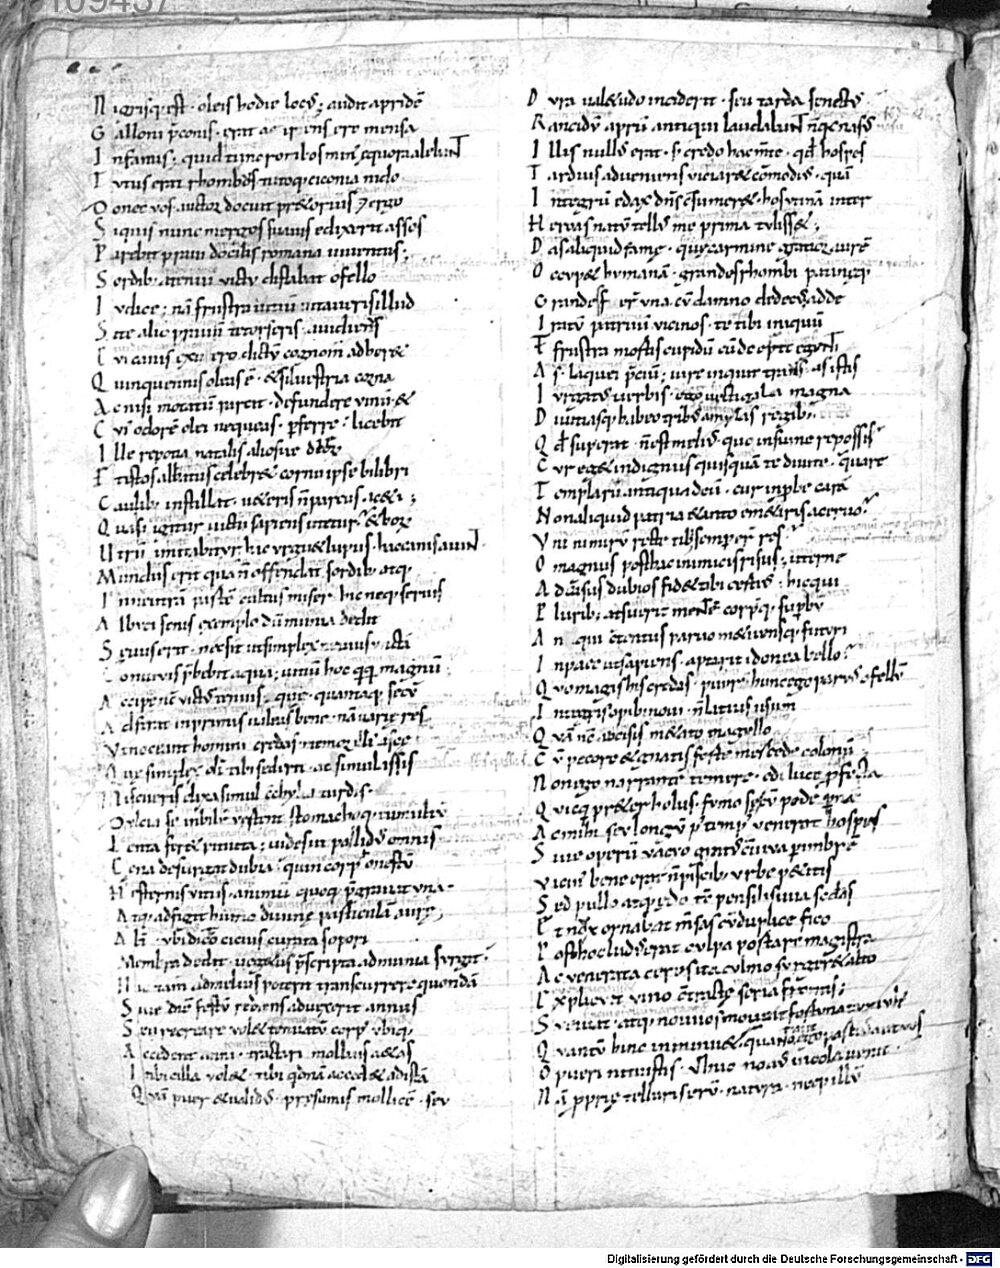 109437
Nigrisq; est · oleis hodie locꝰ; audit apridē
Galloni p̄conis · erat acipensere mensa
Infamis; quid tunc rombos minꝰ equora alebant
Tutus erat rhombus tutoq; ciconia nido
Donec vos auctor docuit pretorius; ergo
Siquis nunc mergos suavis edixerit assos
Parebit pravi docilis romana iuventus;
Sordib; a tenui victu distabit ofello
Iudice; nā frustra vitiū vitaveris illud
Si te alio pravū detorseris avidiens
Cui canis ex vero dictū cognomē adheret
Quinquennis oleas ē · et silvestria corna
Ac nisi mutatū parcit · defundere vinū · et
Cuiꝰ odorē olei nequeas · pferre · licebit
Ille repotia natalis aliosve dierū
Festos albatus celebret cornu ipse bilibri
Caulib; instillat · veteris n̄ parcus aceti;
Quali igitur victu sapiens utetur · et horū
Utrū imitabitur hac urguet lupus · hac canis aiunt
Mundus erit qua n̄ offendat sordib; atq;
In neutrā partē cultus miser · hic neq; servis
Albuci senis exemplo dū munia dedit
Sevus erit · nec sic ut simplex nevius · unctā
Convivis p̄bebit aquā; vitiū hoc qq; magnū
Accipe nc̄ victꝰ tenuis · que · quantaq; secū
Adferat inprimis valeas bene · nā varie res
Ut noceant homini credas memor illiꝰ esce
Que simplex olī tibi sederit · at simul assis
Miscueris elixa simul conchylia turdis
Dulcia se in bilē vertent stomachoq; tumultū
Lenta feret pituita; vides ut pallidꝰ omnis
Cena desurgat dubia · quin corpꝰ onustū
Hesternis vitiis · animū quoq; p̄gravat una
Atq; adfigit humo divine particulā aure;
Alt̄ · ubi dicto citius curata sopori
Membra dedit · vegetus p̄scripta ad munia surgit ·
Hic tam̄ ad melius poterit transcurrere quondā
Sive diē festū rediens advexerit annus
Seu recreare volet tenuatū corpꝰ · ubiq;
Accedent anni · tractari mollius aetas
Inbecilla volet · tibi qdnā accedet ad istā
Quā puer et validꝰ · presumis mollicē · seu
Dura valetudo inciderit · seu tarda senectꝰ
Rancidū aprū antiqui laudabant n̄ q; nasꝰ
Illis nullꝰ erat · s; credo hac m̄te · qd hospes
Tardius adveniens vitiatū cōmodiꝰ · quā
Integrū edax dn̄s cōsumeret · hos utinā inter
Heroas natū tellꝰ me prima tulisset;
Das aliquid fame · que carmine gratior aurē
Occupet humanā · grandes rhombi patineq;
Grande ferunt una cū damno dedecꝰ · adde
Iratū patruū vicinos · te tibi iniquū
Et frustra mortis cupidū cū deerit egenti
As · laquei p̄ciū; iure inquit trausiꝰ · istis
Iurgatur verbis · ego vectigalia magna
Divitiasq; habeo tribꝰ amplas regib;
Qd superat · n̄ est meliꝰ · quo insumere possis
Cur eget indignus quisquā te divite · quare
Templa ruunt antiqua deū · cur inp̄be care
Non aliquid patrie tanto emetiris acervo
Uni nimirū recte tibi semper erunt res
O magnus posthac inimicis risus; uterne
Ad casus dubios fidet sibi certiꝰ; hic qui
Plurib; adsuerit mentē corpusq; supbū
An qui contentus parvo metuensq; futuri
In pace ut sapiens · aptarit idonea bello
Quo magis his credas · puer hunc ego parvꝰ ofellū
Integris opib; novi · n̄ latius usum
Quā nc̄ accisis metato in agello
Cū pecore et gnatis fortē mercede colonū
Non ego narrantē temere · edi luce p̄festa
Quicq̄ preter holus · fumose cū pede p̄ne
Ac mihi seu longū p̄ tempꝰ venerat hospes
Sive operū vacuo gratꝰ cōviva p imbrē
Vicinꝰ bene erat n̄ piscib; urbe petitis
Sed pullo atq; hedo · tē pensilis uva secdas
Et nux ornabat m̄sas cū duplice fico
Post hoc ludꝰ erat culpa potare magistra
Ac venerata ceres ita culmo surgeret alto
Explicuit vino c̄tracte seria frontis;
Seviat · atq; novos moveat fortuna tumultꝰ
Quantū hinc inminuet · quanto aut ego parcius aut vos
O pueri nituistis · ut huc novꝰ incola venit ·
Nā pprie telluris erū · natura · neq; illū
Digitalisierung gefördert durch die Deutsche Forschungsgemeinschaft - DFG